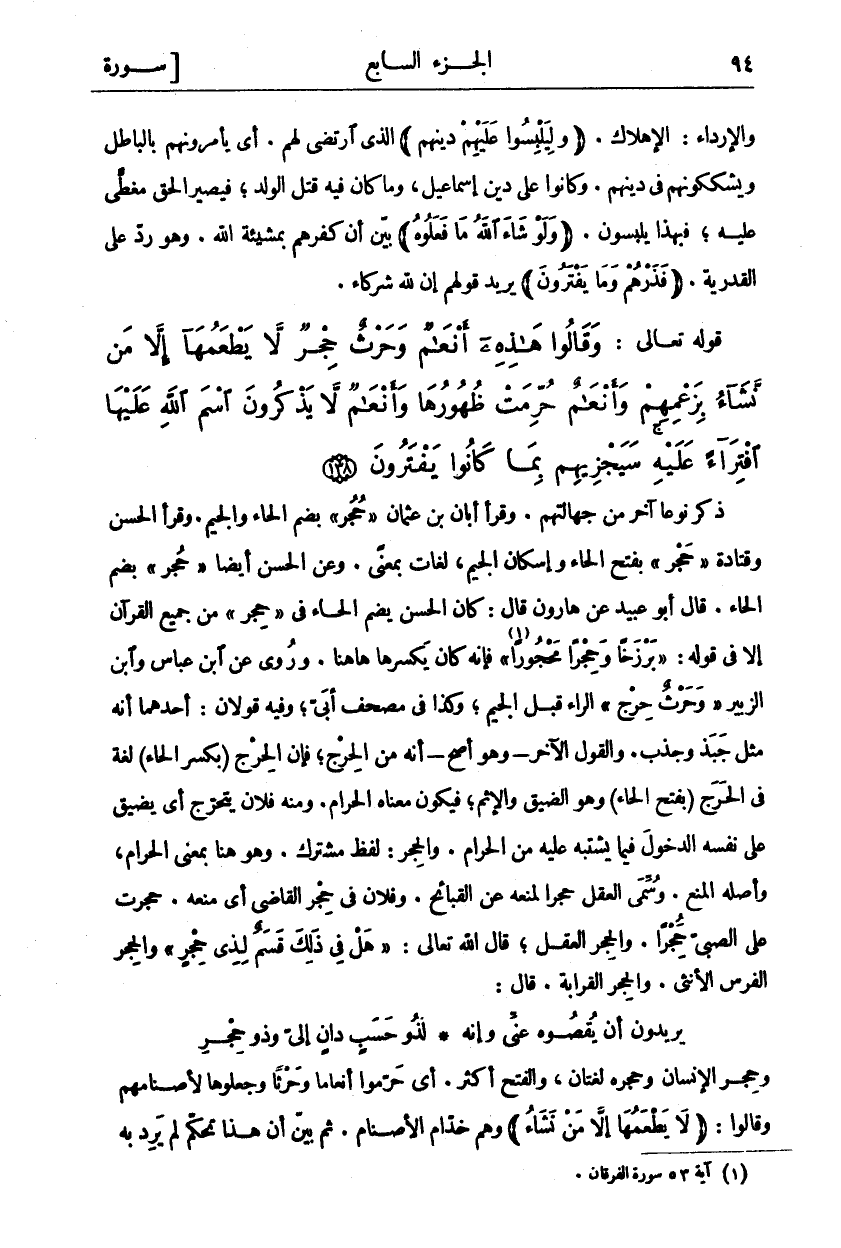 ٩٤ الجزء السابع [سورة
والإرداء : الإهلاك . ﴿وليَلْبِسُوا عَلَيْهِمْ دينهم﴾ الذى ٱرتضى لهم . أى يأمرونهم بالباطل
ويشككونهم فى دينهم . وكانوا على دين إسماعيل، وما كان فيه قتل الولد ؛ فيصير الحق مغطًّى
عليه ؛ فبهذا يلبسون . ﴿وَلَوْ شَاءَ ٱللَّهُ مَا فَعَلُوهُ﴾ بيّن أن كفرهم بمشيئة الله . وهو ردّ على
القدرية . ﴿فَذَرْهُمْ وَمَا يَفْتَرُونَ﴾ يريد قولهم إن لله شركاء .
قوله تعالى : وَقَالُوا هَـٰذِهِۦٓ أَنْعَـٰمٌ وَحَرْثٌ حِجْرٌ لَّا يَطْعَمُهَآ إِلَّا مَن
نَّشَآءُ بِزَعْمِهِمْ وَأَنْعَـٰمٌ حُرِّمَتْ ظُهُورُهَا وَأَنْعَـٰمٌ لَّا يَذْكُرُونَ ٱسْمَ ٱللَّهِ عَلَيْهَا
ٱفْتِرَآءً عَلَيْهِ ۚ سَيَجْزِيهِم بِمَا كَانُوا يَفْتَرُونَ ١٣٨
ذكر نوعا آخر من جهالتهم . وقرأ أبان بن عثمان «حُجُر» بضم الحاء والجيم. وقرأ الحسن
وقتادة « حَجْر » بفتح الحاء وإسكان الجيم، لغات بمعنًى . وعن الحسن أيضا « حُجر » بضم
الحاء . قال أبو عبيد عن هارون قال : كان الحسن يضم الحاء فى « حِجر » من جميع القرآن
إلا فى قوله : «بَرْزَخًا وَحِجْرًا مَحْجُورًا»(١) فإنه كان يَكسرها هاهنا . ورُوى عن ٱبن عباس وٱبن
الزبير « وَحَرْثٌ حِرْج » الراء قبل الجيم ؛ وكذا فى مصحف أُبَىّ ؛ وفيه قولان : أحدهما أنه
مثل جَبَذ وجذب. والقول الآخر – وهو أصح – أنه من الحِرْج؛ فإن الحِرْج (بكسر الحاء) لغة
فى الحَرَج (بفتح الحاء) وهو الضيق والإثم؛ فيكون معناه الحرام. ومنه فلان يتحرّج أى يضيق
على نفسه الدخولَ فيما يشتبه عليه من الحرام . والحِجر : لفظ مشترك . وهو هنا بمعنى الحرام،
وأصله المنع . وسُمِّى العقل حجرا لمنعه عن القبائح . وفلان فى حِجْر القاضى أى منعه . حجرت
على الصبىّ حُجْرًا . والحِجر العقل ؛ قال الله تعالى : « هَلْ فِى ذَلِكَ قَسَمٌ لِذِى حِجْرٍ » والحِجر
الفرس الأنثى . والحِجر القرابة . قال :
يريدون أن يُقصُوه عنّى وإنه * لَذُو حَسَبٍ دانٍ إلىّ وذو حِجْرِ
وحِجر الإنسان وحَجره لغتان ، والفتح أكثر . أى حَرّموا أنعاما وَحَرْثًا وجعلوها لأصنامهم
وقالوا : ﴿لَا يَطْعَمُهَا إِلَّا مَنْ نَشَاءُ﴾ وهم خدّام الأصنام . ثم بيّن أن هذا تحكّم لم يَرِد به
(١) آية ٥٣ سورة الفرقان .